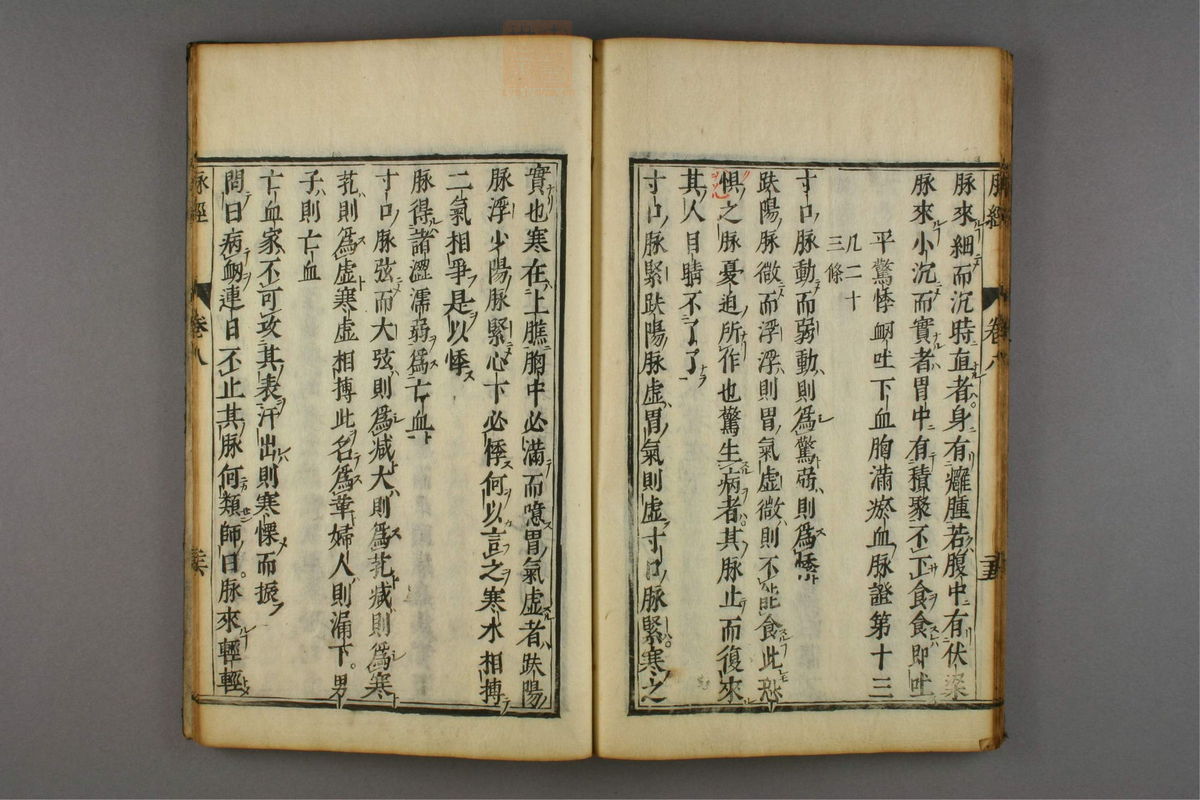 脉經 卷八 三五
脉來細而沉時直者身有癰腫若腹中有伏梁
脉來小沉而實者胃中有積聚不下食食即吐
平驚悸衂吐下血胸滿瘀血脉證第十三
凡二十
三條
寸口脉動而弱動則爲驚弱則爲悸
趺陽脉微而浮浮則胃氣虚微則不能食此恐
懼之脉憂迫所作也驚生病者其脉止而復來
其人目睛不了了
寸口脉緊趺陽脉虚胃氣則虚寸口脉緊寒之
實也寒在上膲胸中必滿而噫胃氣虚者趺陽
脉浮少陽脉緊心下必悸何以言之寒水相搏
二氣相爭是以悸
脉得諸澀濡弱爲亡血
寸口脉弦而大弦則爲减大則爲芤减則爲寒
芤則爲虚寒虚相搏此名爲革婦人則漏下男
子則亡血
亡血家不可攻其表汗出則寒慄而振
問曰病衂連日不止其脉何類師曰脉來輕輕
脉經 卷八